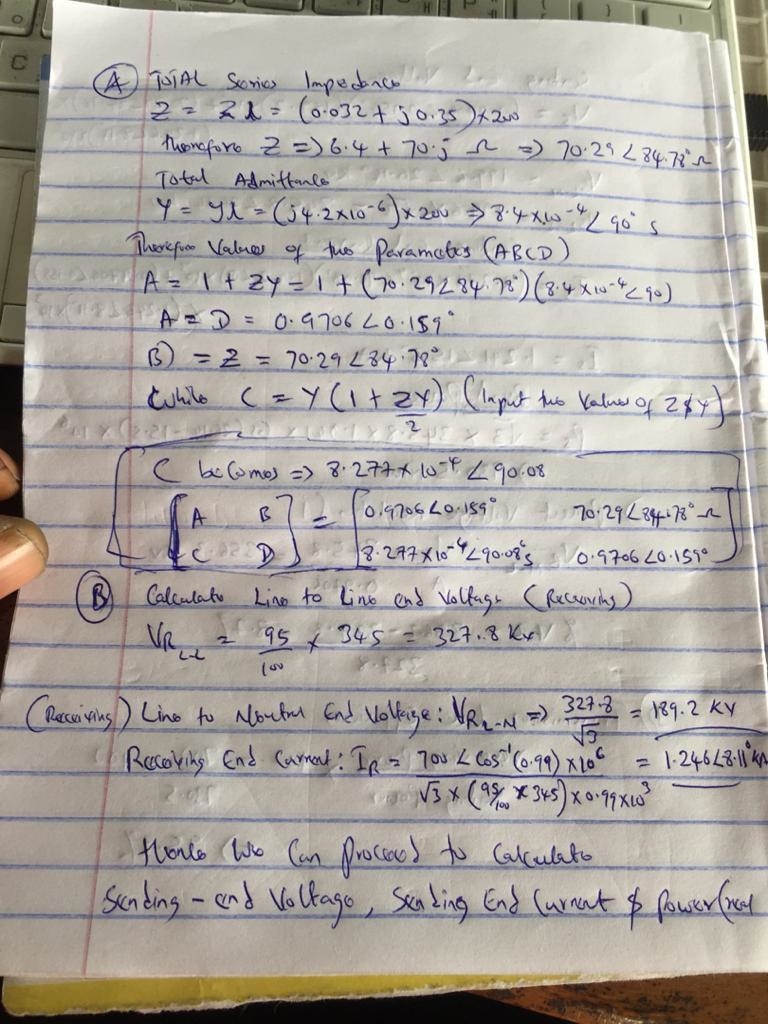 (A) Total Series Impedance
Z = zl = (0.032 + j0.35) x 200
therefore Z => 6.4 + 70.j Ω => 70.29 ∠84.78° Ω
Total Admittance
Y = yl = (j4.2x10⁻⁶) x 200 => 8.4x10⁻⁴ ∠90° s
Therefore Values of the Parameters (ABCD)
A = 1 + ZY = 1 + (70.29∠84.78°)(8.4x10⁻⁴∠90)
A = D = 0.9706 ∠0.159°
B) = Z = 70.29 ∠84.78°
While C = Y(1 + ZY/2) (Input the Values of Z $ Y)
C becomes => 8.277x10⁻⁴ ∠90.08
[A B] = [0.9706∠0.159° 70.29∠84.78° Ω]
[C D] [8.277x10⁻⁴∠90.08°s 0.9706∠0.159°]
(B) Calculate Line to Line end Voltage (Receiving)
VR LL = 95/100 x 345 = 327.8 KV
(Receiving) Line to Neutral End Voltage: VR L-N => 327.8/√3 = 189.2 KV
Receiving End Current: IR = 700 ∠cos⁻¹(0.99) x10⁶ / √3 x (95/100 x 345) x 0.99x10³ = 1.246∠8.11° kA
Hence We Can Proceed to Calculate
Sending-end Voltage, Sending End Current $ power (real